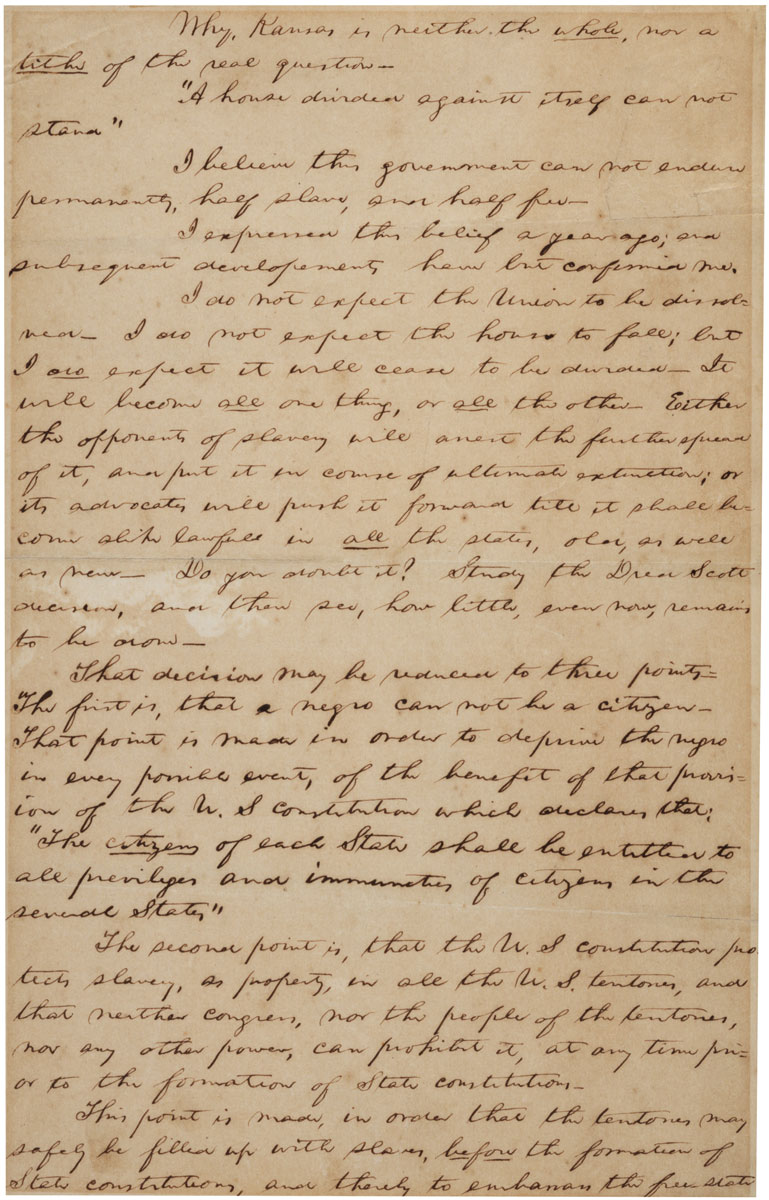 Why, Kansas is neither the whole, nor a
tithe of the real question—
"A house divided against itself can not
stand"
I believe this government can not endure
permanently, half slave, and half free—
I expressed this belief a year ago; and
subsequent developements have but confirmed me.
I do not expect the Union to be dissol-
ved— I do not expect the house to fall; but
I do expect it will cease to be divided— It
will become all one thing, or all the other— Either
the opponents of slavery will arrest the further spread
of it, and put it in course of ultimate extinction; or
its advocates will push it forward till it shall be-
come alike lawfull in all the states, old, as well
as new— Do you doubt it? Study the Dred Scott
decision, and then see, how little, even now, remains
to be done—
That decision may be reduced to three points—
"The first is, that a negro can not be a citizen—
That point is made in order to deprive the negro
in every possible event, of the benefit of that provis-
ion of the U. S constitution which declares that:
"The citizens of each State shall be entitled to
all previliges and immunities of citizens in the
several States"
The second point is, that the U. S constitution pro-
tects slavery, as property, in all the U. S. territories, and
that neither congress, nor the people of the territories,
nor any other power, can prohibit it, at any time pri-
or to the formation of State constitutions—
This point is made, in order that the territories may
safely be filled up with slaves, before the formation of
State constitutions, and thereby to embarrass the free state